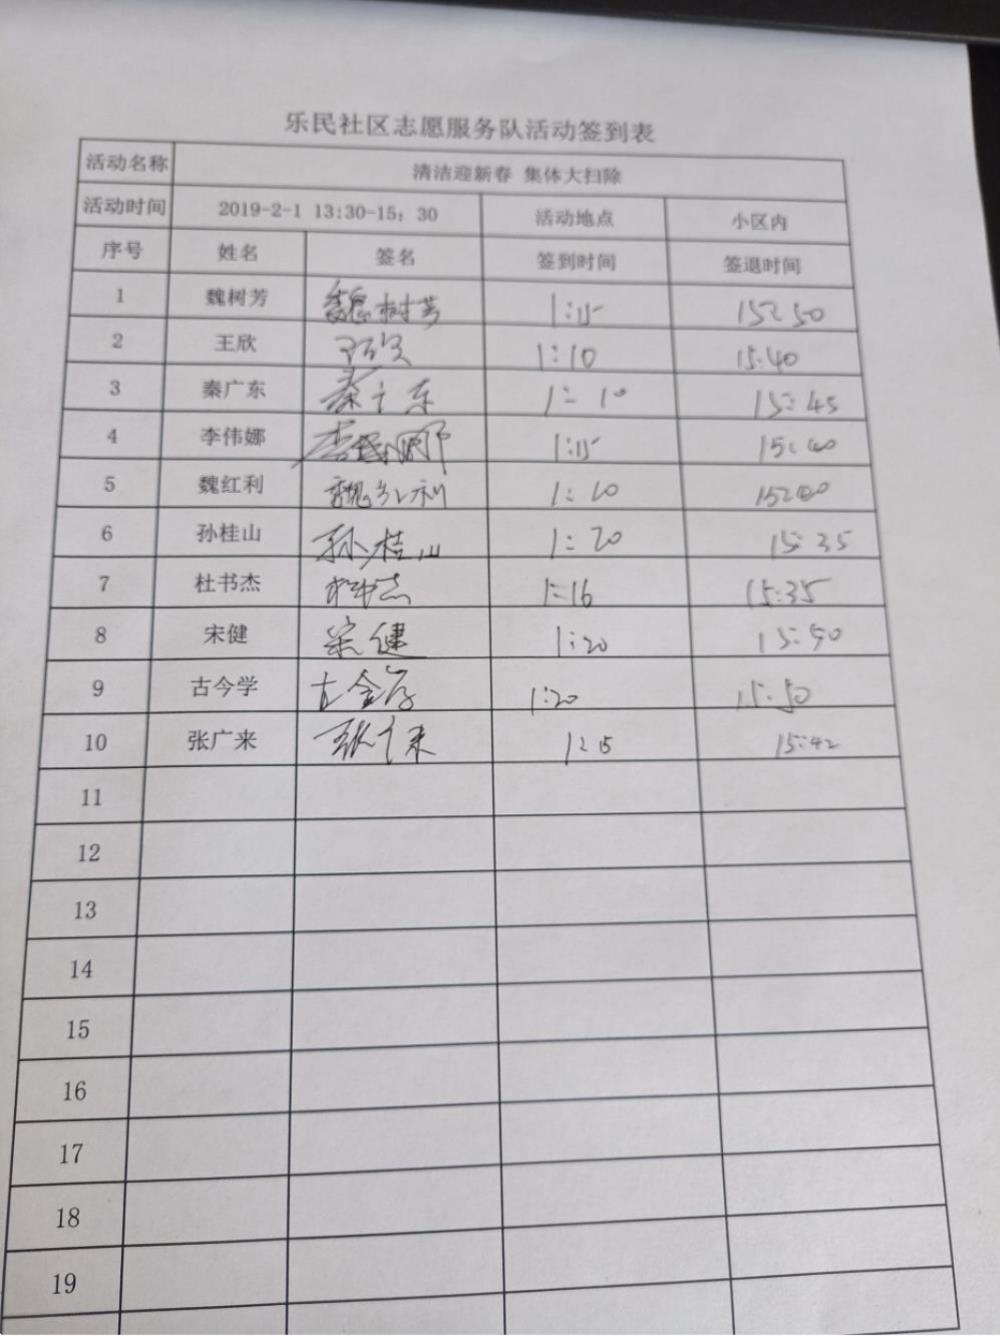 乐民社区志愿服务队活动签到表
活动名称 清洁迎新春 集体大扫除
活动时间 2019-2-1 13:30-15：30 活动地点 小区内
序号 姓名 签名 签到时间 签退时间
1 魏树芳 魏树芳 1:15 15:50
2 王欣 王欣 1:10 15:40
3 秦广东 秦广东 1:10 15:45
4 李伟娜 1:15 15:40
5 魏红利 魏红利 1:10
6 孙桂山 孙桂山 1:20 15:35
7 杜书杰 杜书杰 1:16 15:35
8 宋健 宋健 1:20 15:50
9 古今学 1:20 15:50
10 张广来 张广来 1:15 15:42
11
12
13
14
15
16
17
18
19